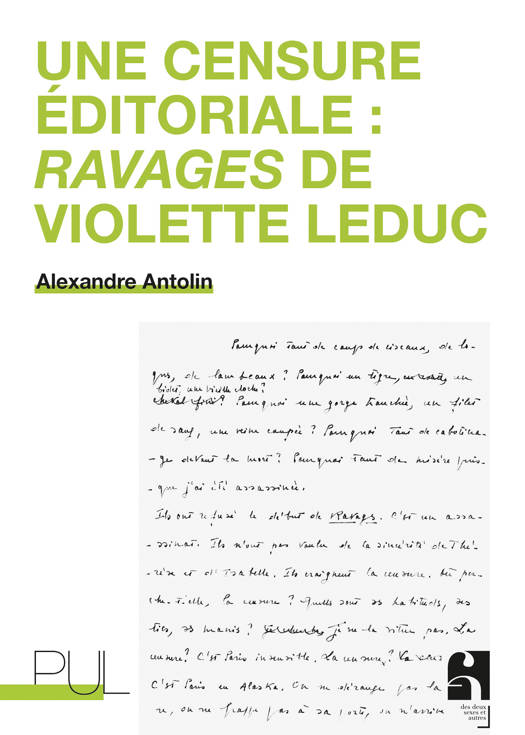 UNE CENSURE
ÉDITORIALE :
RAVAGES DE
VIOLETTE LEDUC
Alexandre Antolin
Pourquoi tant de coups de ciseaux, de lo-
ques, de lambeaux ? Pourquoi un tigre, un
biche, une vieille cloche ?
Pourquoi une gorge tranchée, un filet
de sang, une veine coupée ? Pourquoi tant de cabotina-
-ge devant la mort ? Pourquoi tant de misère puis-
-que j'ai été assassinée.
Ils ont refusé le début de Ravages. C'est un assa-
-ssinat. Ils n'ont pas voulu de la sincérité de Thé-
-rèse et d'Isabelle. Ils craignent la censure. Où per-
che-t-elle, la censure ? Quelles sont ses habitudes, ses
tics, ses manies ? je ne la situe pas. La
censure ? C'est Paris insensible. La censure ?
C'est Paris en Alaska. On ne dérange pas la
on ne frappe pas à sa porte, on n'arrive
PUL
des deux
sexes et
autres